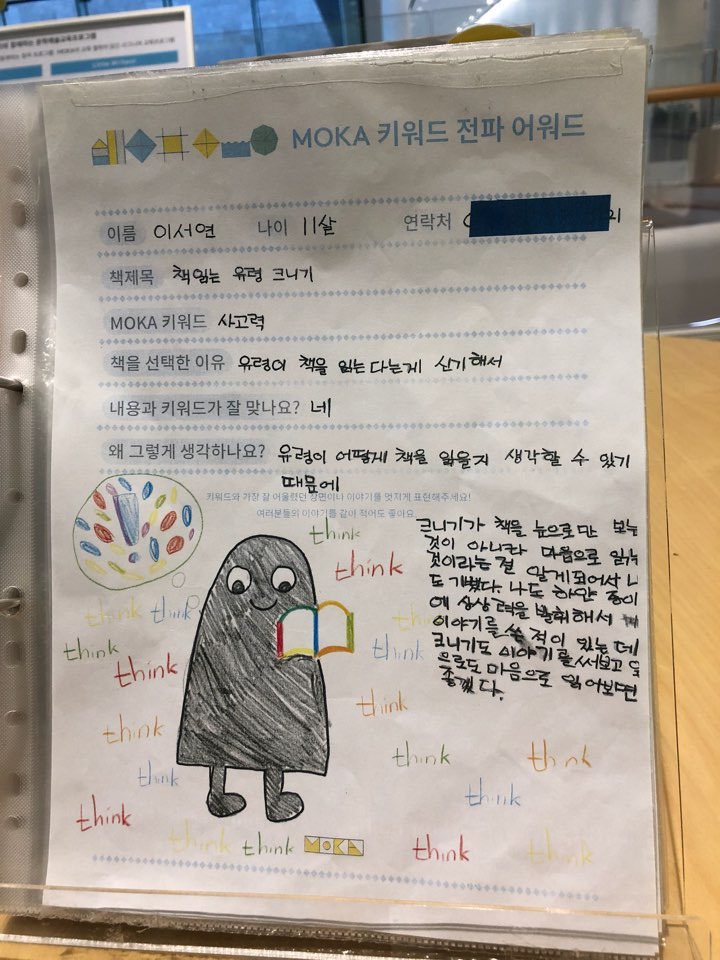 MOKA 키워드 전파 어워드
이름 이서연 나이 11살 연락처
책제목 책읽는 유령 크니기
MOKA 키워드 사고력
책을 선택한 이유 유령이 책을 읽는다는게 신기해서
내용과 키워드가 잘 맞나요? 네
왜 그렇게 생각하나요? 유령이 어떻게 책을 읽을지 생각할 수 있기
때문에
키워드와 가장 잘 어울렸던 장면이나 이야기를 멋지게 표현해주세요!
여러분들의 이야기를 같이 적어도 좋아요.
크니기가 책을 눈으로만 보는
것이 아니라 마음으로 읽는
것이라는 걸 알게되어서 나
도 기뻤다. 나도 하얀 종이
에 상상력을 발휘해서
이야기를 쓴 적이 있는데
크니기도 이야기를 써보고
으로도 마음으로 읽어보면
좋겠다.
think
think
think think
think
think
think
think
think
think
think
think think
think
think
think
think think MOKA think think